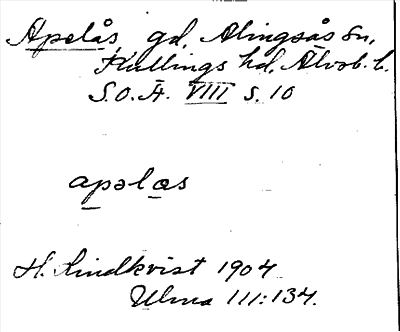 Apelås, gd, Alingsås sn,
Kullings hd, Älvsb. l.
S.O.Ä. VIII s. 10
apəlas
H. Lindkvist 1904
Ulma 111:134.